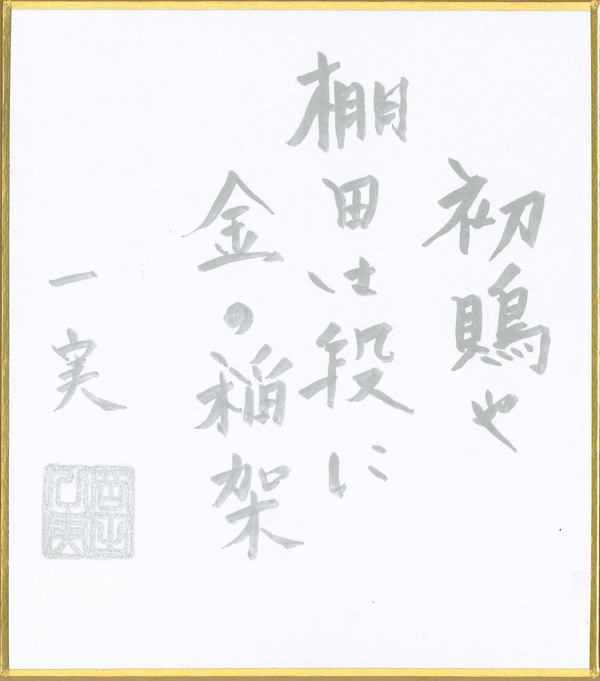 初鵙や
棚田は段に
金の稲架
一実